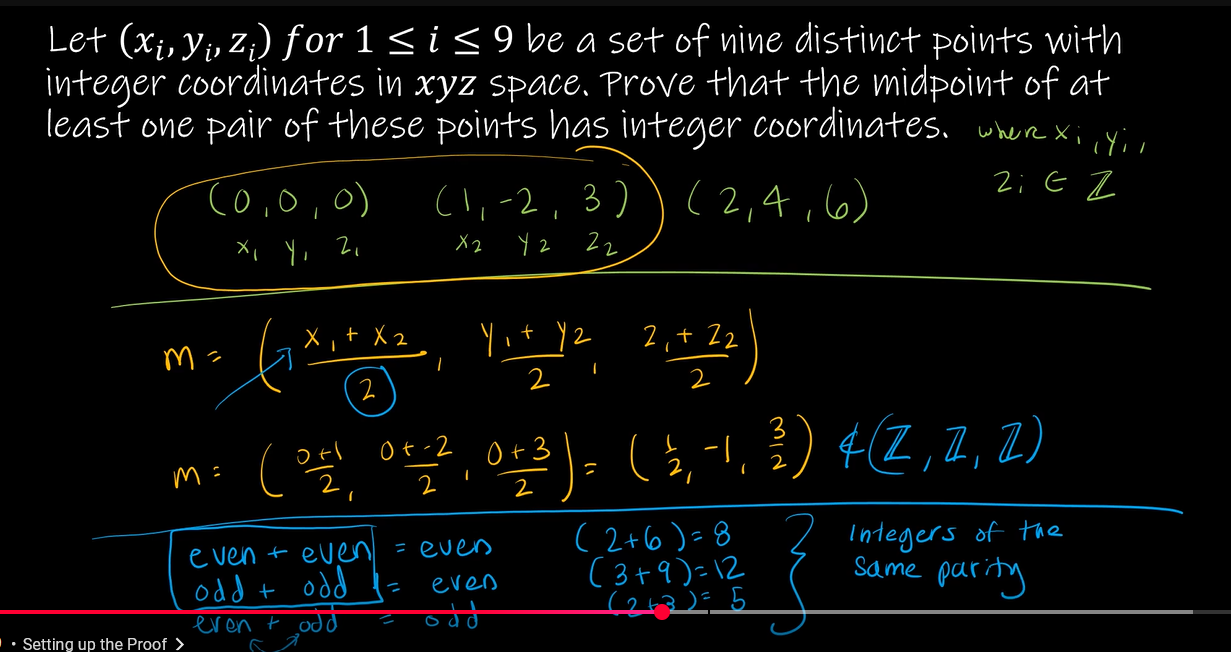 Let (xᵢ, yᵢ, zᵢ) for 1 ≤ i ≤ 9 be a set of nine distinct points with
integer coordinates in xyz space. Prove that the midpoint of at
least one pair of these points has integer coordinates. where xᵢ, yᵢ,
zᵢ ∈ ℤ
(0, 0, 0) (1, -2, 3) (2, 4, 6)
x₁ y₁ z₁ x₂ y₂ z₂
m = ( (x₁ + x₂)/2, (y₁ + y₂)/2, (z₁ + z₂)/2 )
m = ( (0+1)/2, (0+-2)/2, (0+3)/2 ) = ( 1/2, -1, 3/2 ) ∉ (ℤ, ℤ, ℤ)
even + even = even (2+6) = 8 Integers of the
odd + odd = even (3+9) = 12 same parity
even + odd = odd (2+3) = 5
• Setting up the Proof >